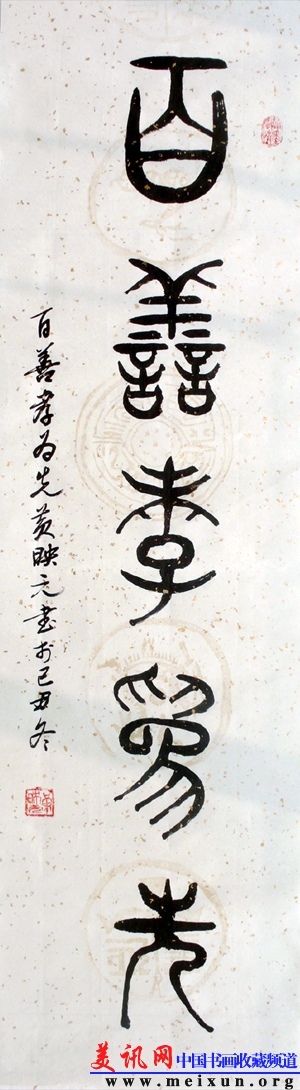 百善孝為先
百善孝为先黄映元書於己丑冬
美讯网 中国书画收藏频道
www.meixun.org